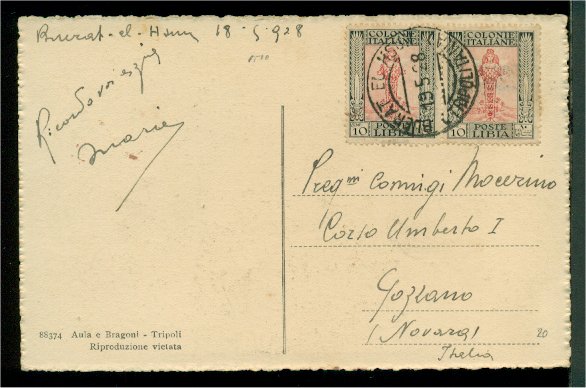 Buerat-el-Hsun 18-5-928
Ricordo vi e
Maria
COLONIE ITALIANE
10 POSTE LIBIA
COLONIE ITALIANE
10 POSTE LIBIA
BUERAT EL HSUN
TRIPOLITANIA
19.5.28
Pregmi Coniugi Macerino
Corso Umberto I
Gozzano
(Novara)
Italia
20
88374 Aula e Bragoni - Tripoli
Riproduzione vietata